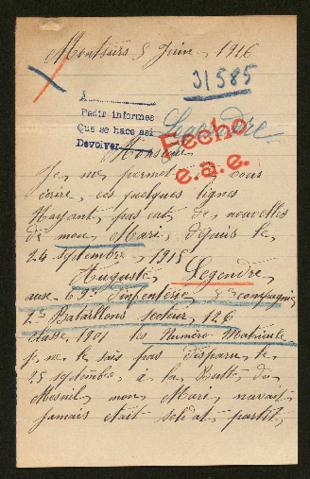 Montsûrs 5 Juin 1916
31585
A
Pedir informes
Que se hace asi
Devolver
Legendre
Fecho
e.a.e.
Monsieur
Je me permet de vous
écrire, ces quelques lignes
N'ayant pas eut de nouvelles
de mon Mari, depuis le
24 septembre 1915
Auguste Legendre,
aux 69e Infenterie, 5e compagnie,
2e Bataillons secteur, 126
classe, 1901 les Numéro Matricule,
je ne le sais pas disparu le
25 septembre, à la Butte du
Mesnil, mon Mari, navait
Jamais était soldat, partit,